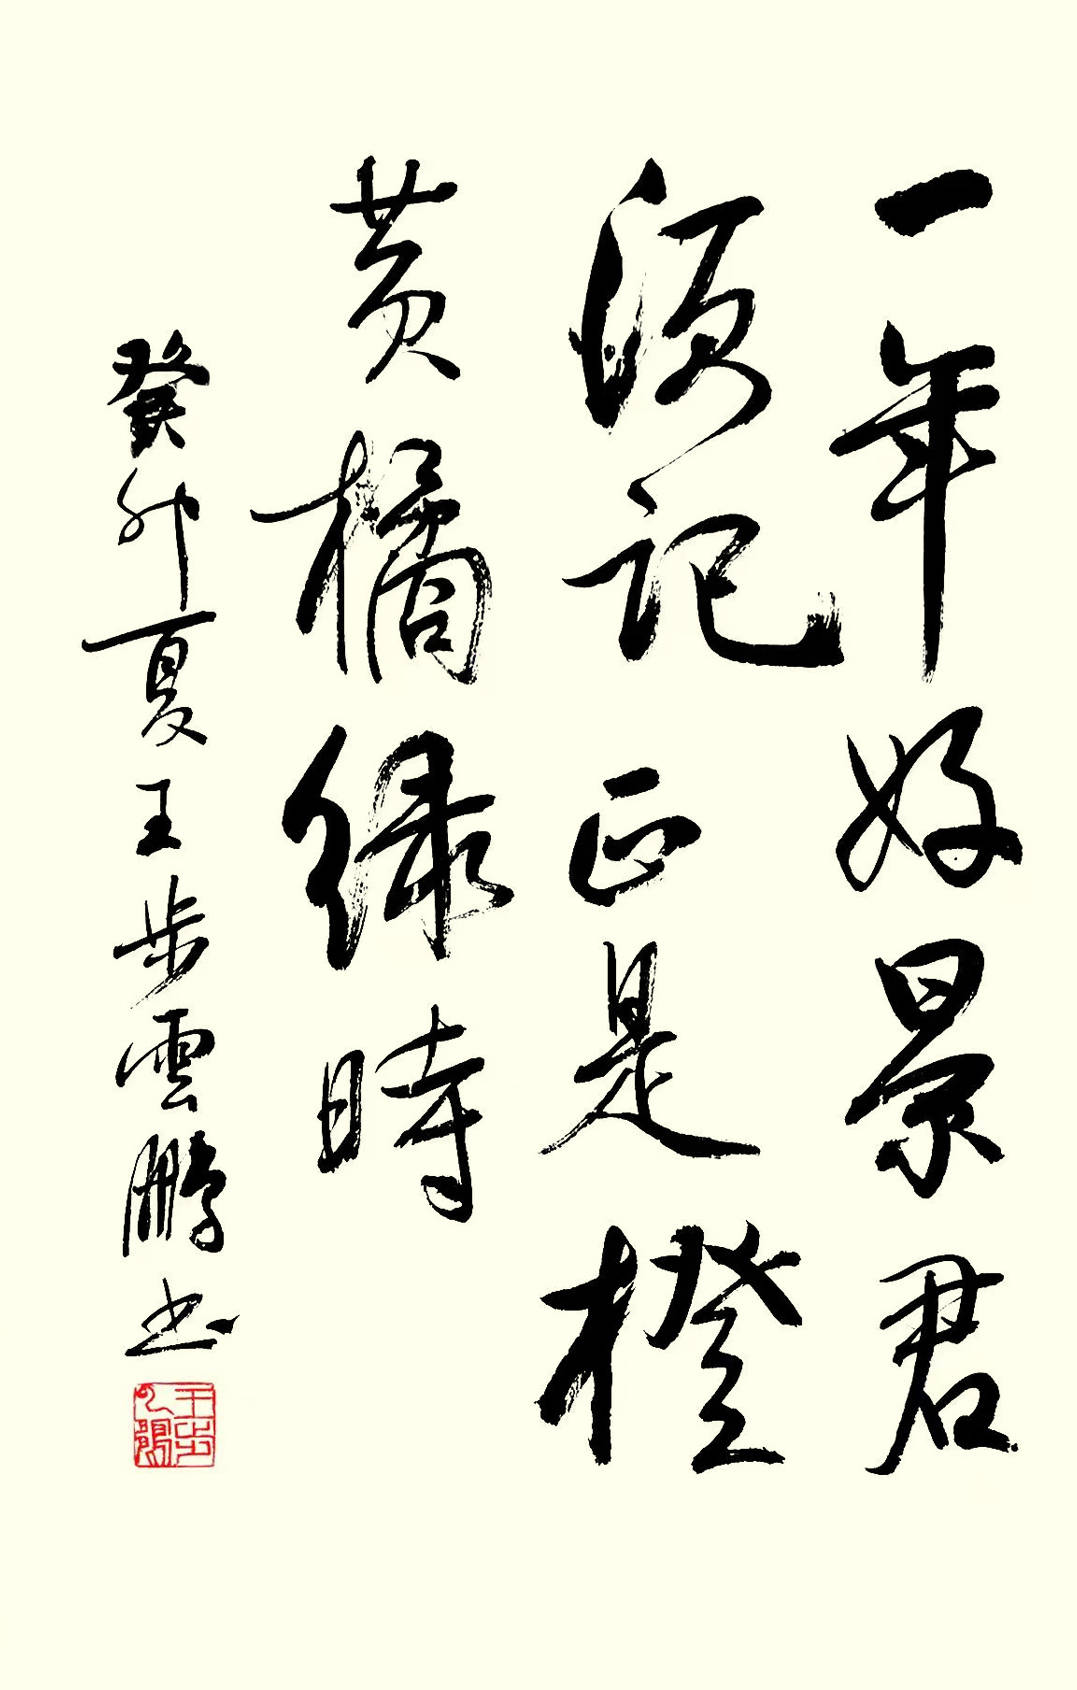 一年好景君
須记正是橙
黄橘绿時
癸卯夏王步雲鵬书
王步云鹏